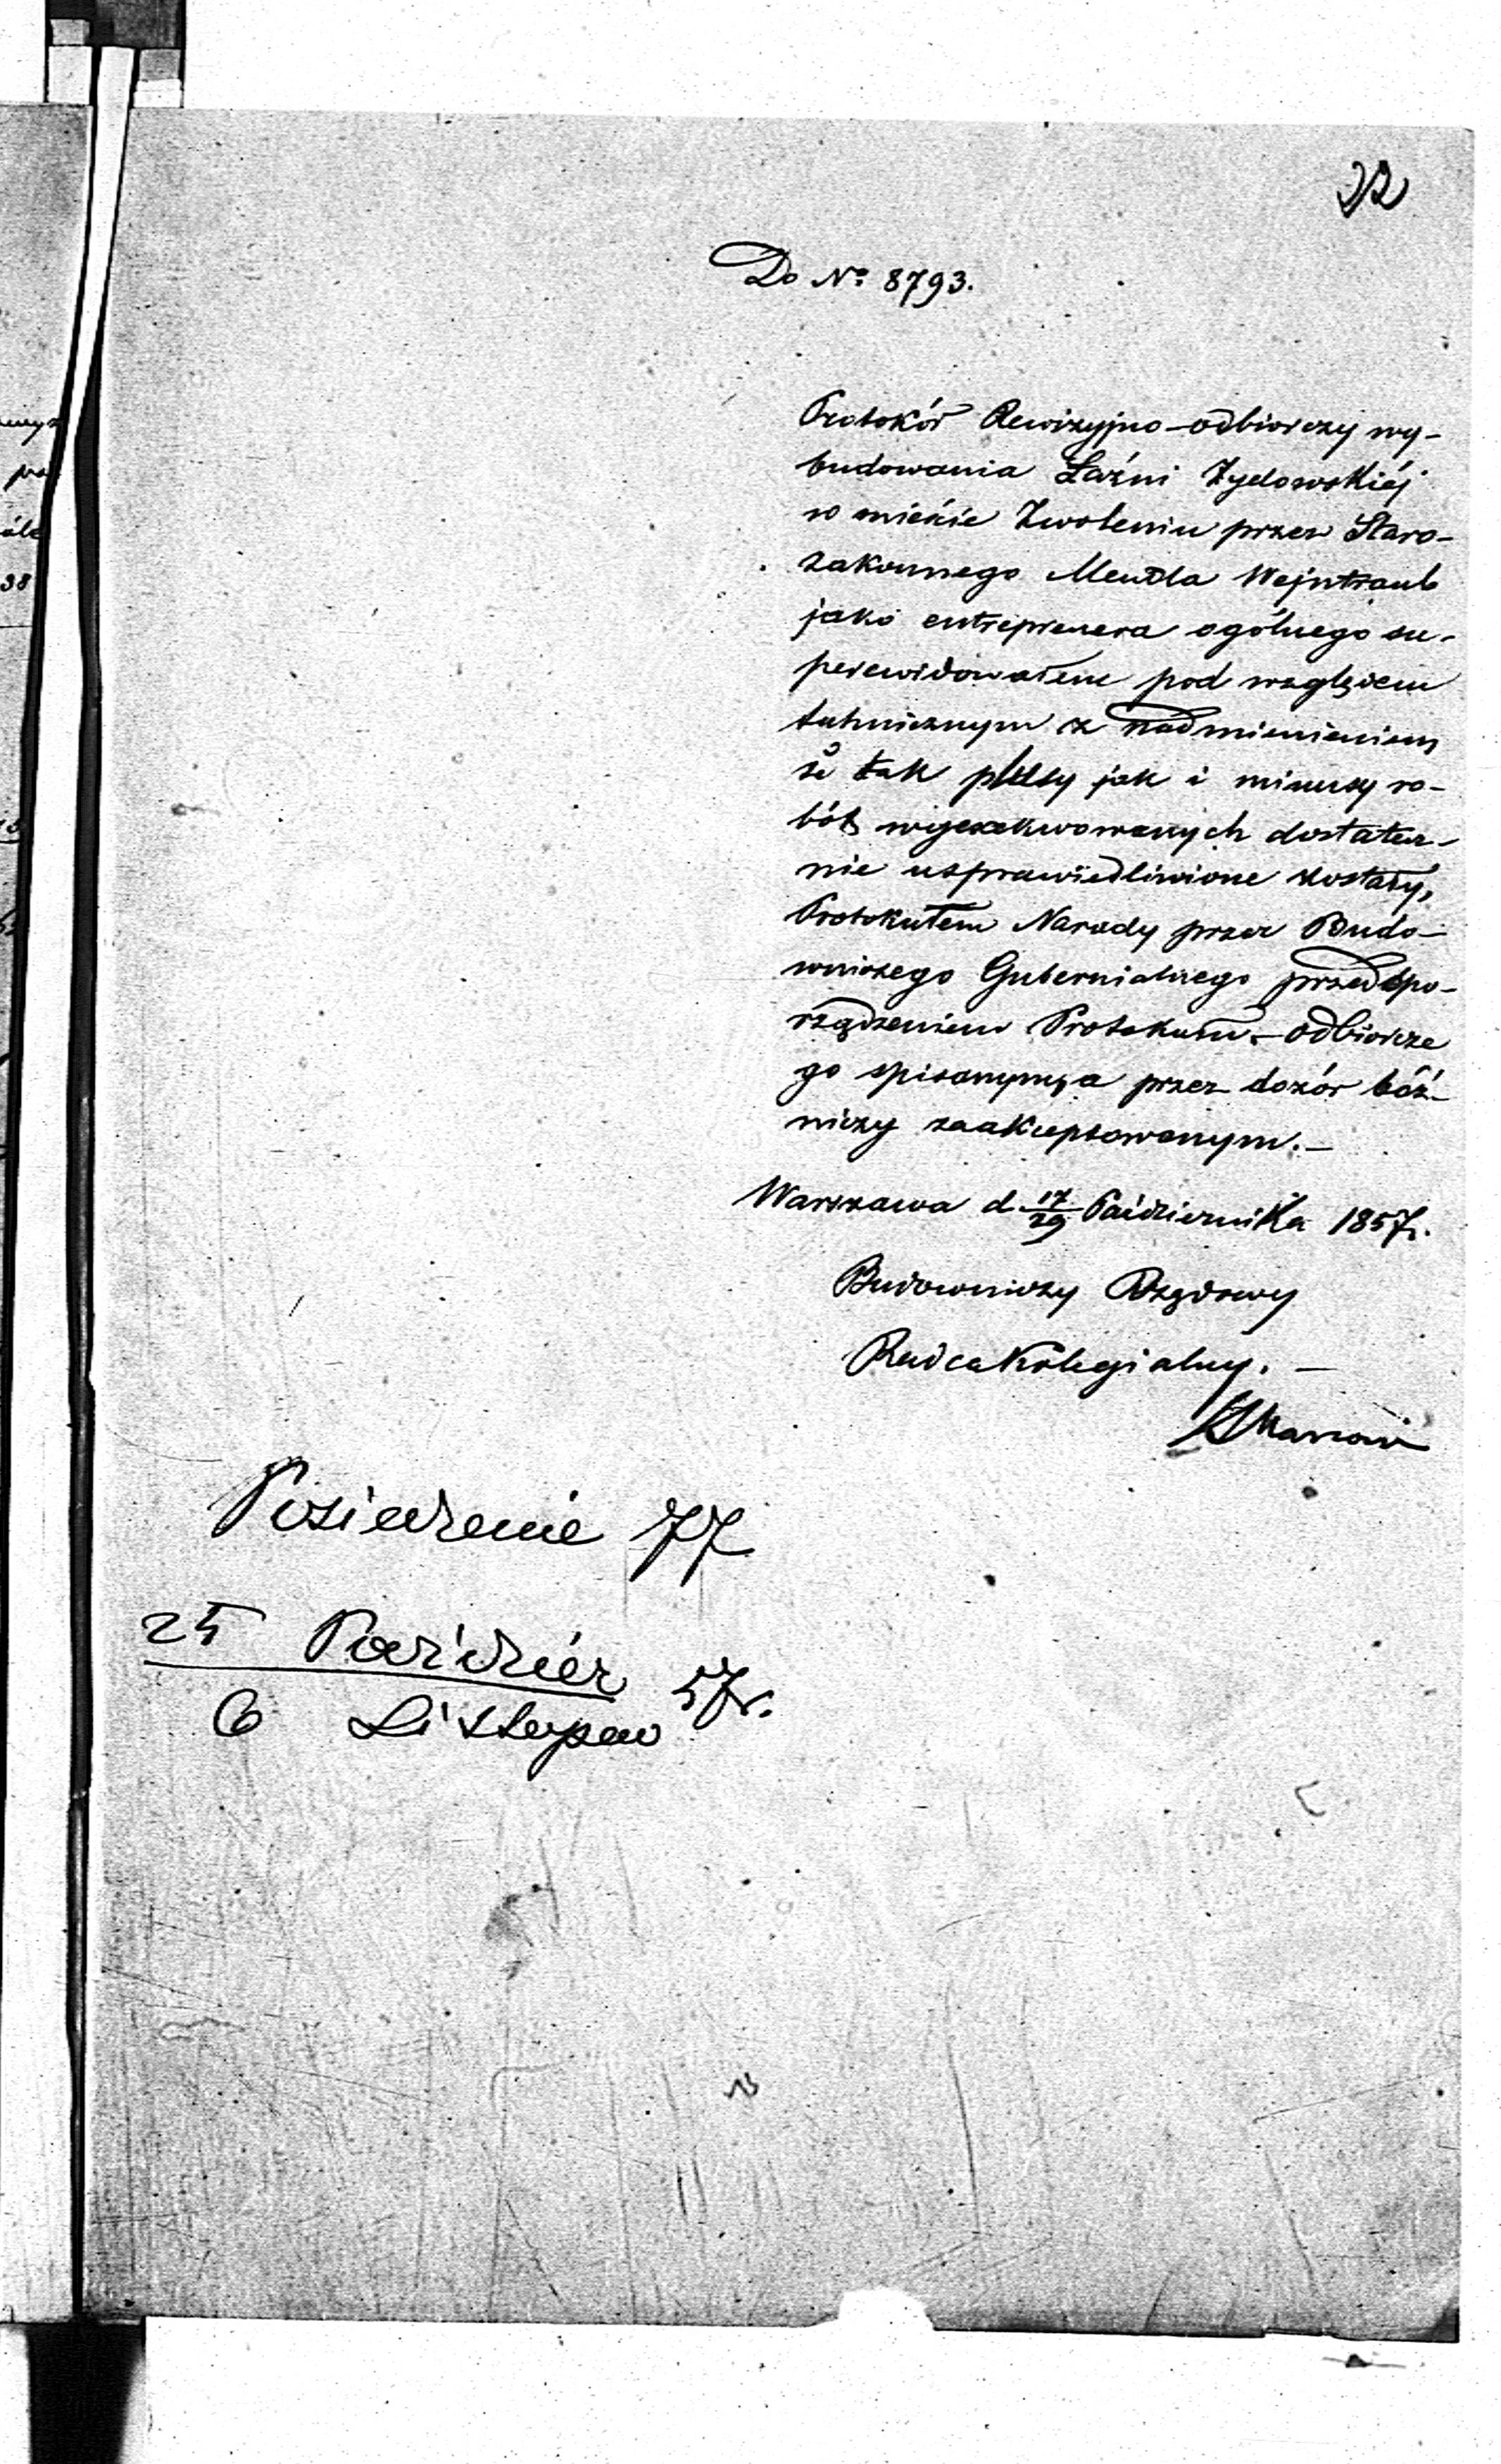 22
Do No 8793.
Protokół Rewizyjno-odbiorczy wy-
budowania Łaźni Żydowskiéj
w mieście Zwoleniu przez Staro-
zakonnego Mendla Wejntraub
jako entreprenera ogólnego su-
perewidowałem pod względem
tehnicznym z nadmienieniem
że tak plusy jak i minusy ro-
bót wyexekwowanych dostatecz-
nie usprawiedliwione zostały,
Protokułem Narady przez Budo-
wniczego Gubernialnego przed spo-
rządzeniem Protokułu-odbiorcze
go spisanym, a przez dozór bóż-
niczy zaakceptowanym.-
Warszawa d. 17/29 Października 1857 r.
Budowniczy Rządowy
Radca Kolegialny. -
Posiedzenie 77
25 Paździer 57 r.
6 Listopad